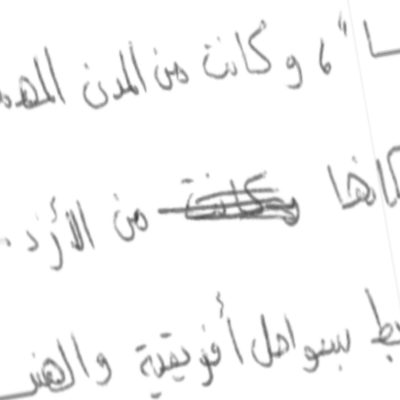 ـا"، وكانت من المدن المهمـ
كانها وكانت من الأزد.
ـط بسواحل أفريقية والهنـ